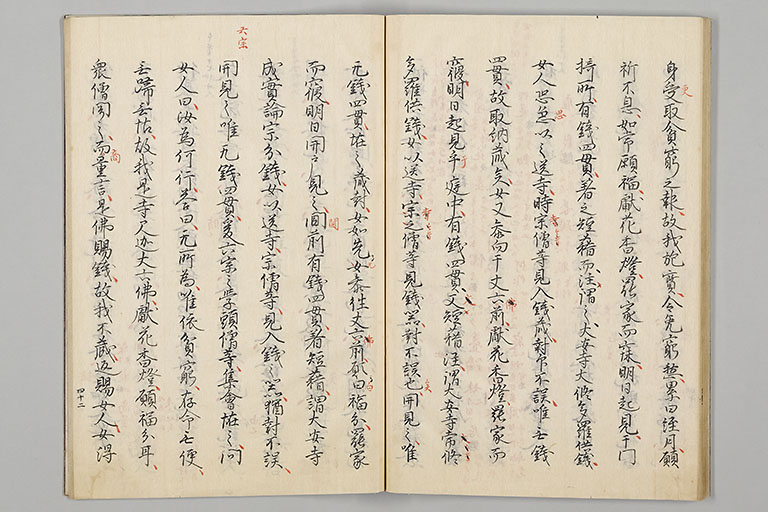 身受取貧窮之報故我施寶令免窮愁累日逕月願
祈不息如常願福獻花香燈罷家而寐明日起見于門
椅所有錢四貫著之短籍而注謂之大安寺大修多羅供錢
女人恐急以之送寺時宗僧等見入錢藏封不誤唯无錢
四貫故取納藏矣女又参向于丈六前獻花香燈罷家而
寢明日起見于庭中有錢四貫又短籍注謂大安寺常修
多羅供錢女以送寺宗之僧等見錢器封不誤也開見之唯
无錢四貫怪之藏封女如先女参往丈六前願白福分罷家
而寢明日開戸見之閫前有錢四貫著短籍謂大安寺
成實論宗分錢女以送寺宗僧等見入錢之器猶封不誤
開見之唯无錢四貫爰六宗之學頭僧等集會怪之問
女人曰汝為何行荅曰无所為唯依貧窮存命无便
无歸无怙故我是寺尺迦丈六佛獻花香燈願福分耳
衆僧聞之而量言是佛賜錢故我不藏返賜女人女得
四十二